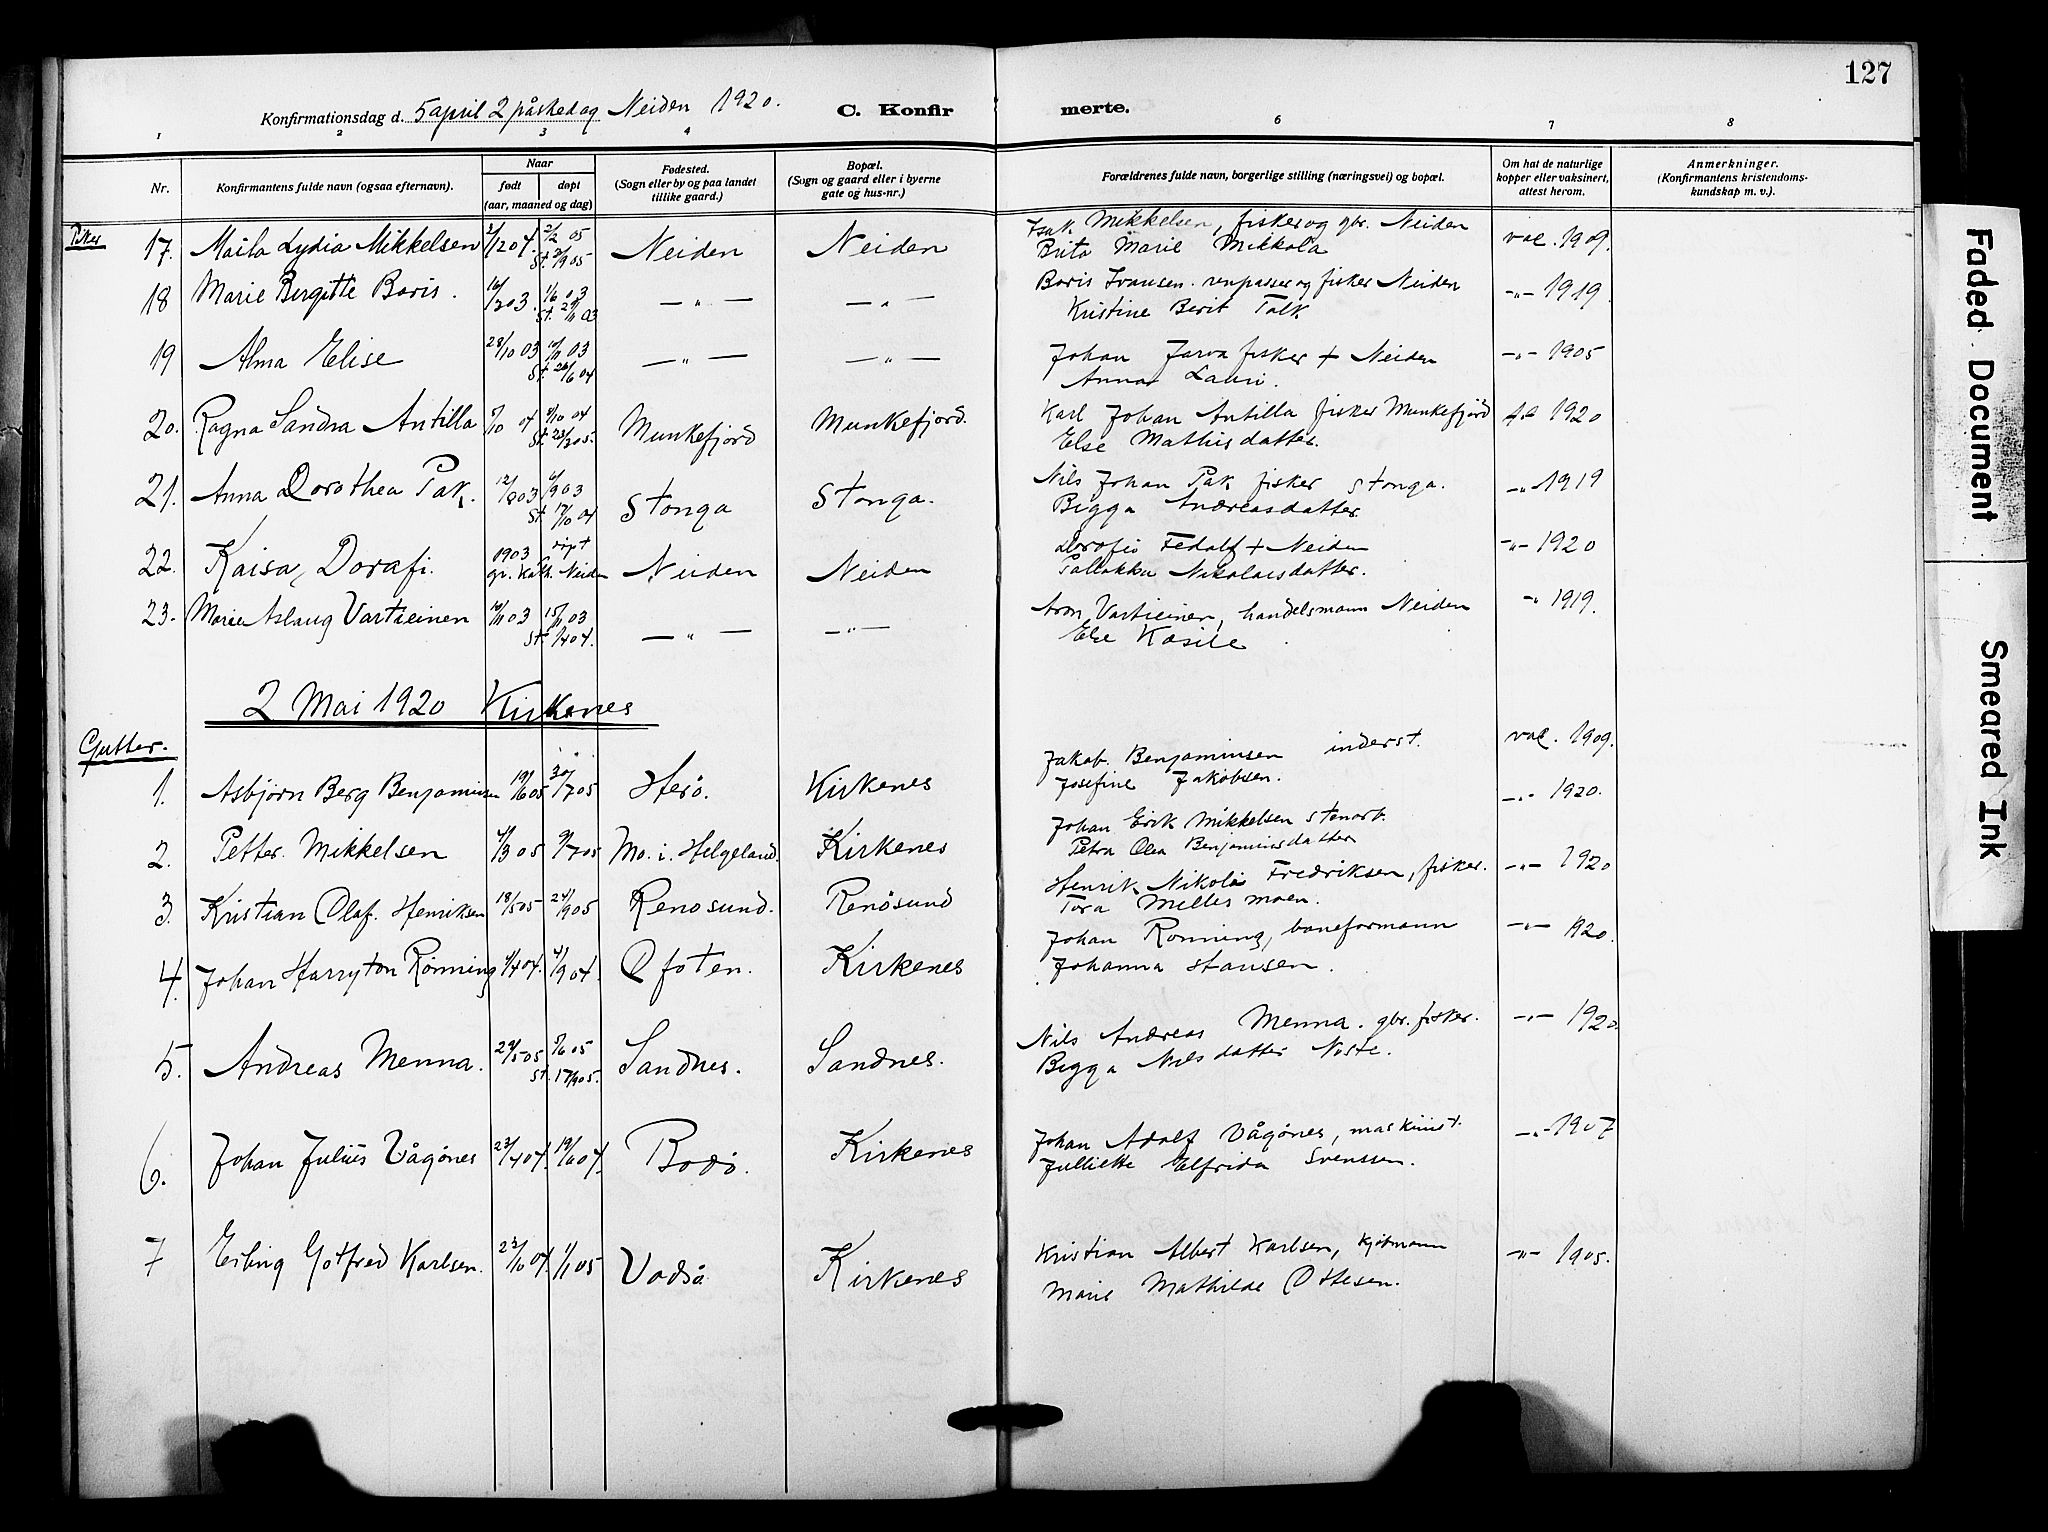 127
Konfirmationsdag d. 5 april 2 påskedag Neiden 1920. C. Konfirmerte.
1 2 3 4 6 7 8
Nr. Konfirmantens fulde navn (ogsaa efternavn). Naar født døpt (aar, maaned og dag) Fødested. (Sogn eller by og paa landet tillike gaard.) Bopæl. (Sogn og gaard eller i byerne gate og hus-nr.) Forældrenes fulde navn, borgerlige stilling (næringsvei) og bopæl. Om hat de naturlige kopper eller vaksinert, attest herom. Anmerkninger. (Konfirmantens kristendomskundskap m. v.).
Piker
17. Maila Lydia Mikkelsen 2/12 04. 2/2 05 Neiden Neiden Isak Mikkelsen, fisker og gbr. Neiden vac. 1909.
St. Brita Marie Mikkola
18 Marie Bergitte Boris. 16/2 03. 1/6 03 — " — — " — Boris Ivansen. renpasser og fisker Neiden -"- 1919.
St. 29/11 03 Kristine Berit Talk
19 Alma Elise 28/10 03 10/11 03 — " — — " — Johan Jarva fisker + Neiden -"- 1905
St. 26/6 04 Anna Lauri.
20. Ragna Sandra Antilla 04 9/10 04 Munkefjord Munkefjord. Karl Johan Antilla fisker Munkefjord 1920
St. 23/2 05. Else Mathisdatter.
21. Anna Dorothea Pak. 12/8 03 6/9 03 Stonga Stonga. Nils Johan Pak fisker Stonga. -"- 1919
St. 17/10 04 Bigga Andreasdatter
22. Kaisa, Dorafi. 1903 døpt gr. kath. Neiden Neiden Neiden Dorofis Fedalf + Neiden -"- 1920
Nikolaisdatter.
23. Marie Aslaug Vartieinen 10/11 03 15/11 03 — " — — " — Aron Vartieinen, handelsmann Neiden " 1919.
St. Else Kasile
2 Mai 1920 Kirkenes
Gutter.
1. Asbjørn Berg Benjaminsen 19/6 05 30/7 05 Herö. Kirkenes Jakob Benjaminsen inderst. vac. 1909.
Josefine Jakobsen.
2. Petter Mikkelsen 4/3 05 9/7 05 Mo. i. Helgeland. Kirkenes Johan Erik Mikkelsen stenarb. -"- 1920.
Petra Olea Benjaminsdatter
3. Kristian Olaf. Henriksen 18/5 05 24/9 05 Renosund. Renösund Henrik Nikolai Fredriksen, fisker. -"- 1920
Tora Millesmoen.
4. Johan Harryton Rönning 4/4 04. 4/9 04. Ofoten. Kirkenes Johan Ronning, baneformann -"- 1920.
Johanna Hansen.
5. Andreas Menna. 29/5 05 5/6 05 Sandnes. Sandnes. Nils Andreas Menna. gbr. fisker. -"- 1920
St. 17/9 05. Bigga Nilsdatter Noste.
6. Johan Julius Vågönes 23/4 04. 19/6 04. Bodö. Kirkenes Johan Adolf Vågönes, maskinist. -"- 1907
Julliette Elfrida Svenssen.
7 Erling Gotfred Karlsen. 23/10 04. 1/1 05 Vadsö Kirkenes Kristian Albert Karlsen, kjörmann -"- 1905.
Marie Mathilde Ottesen.
Faded Document
Smeared Ink